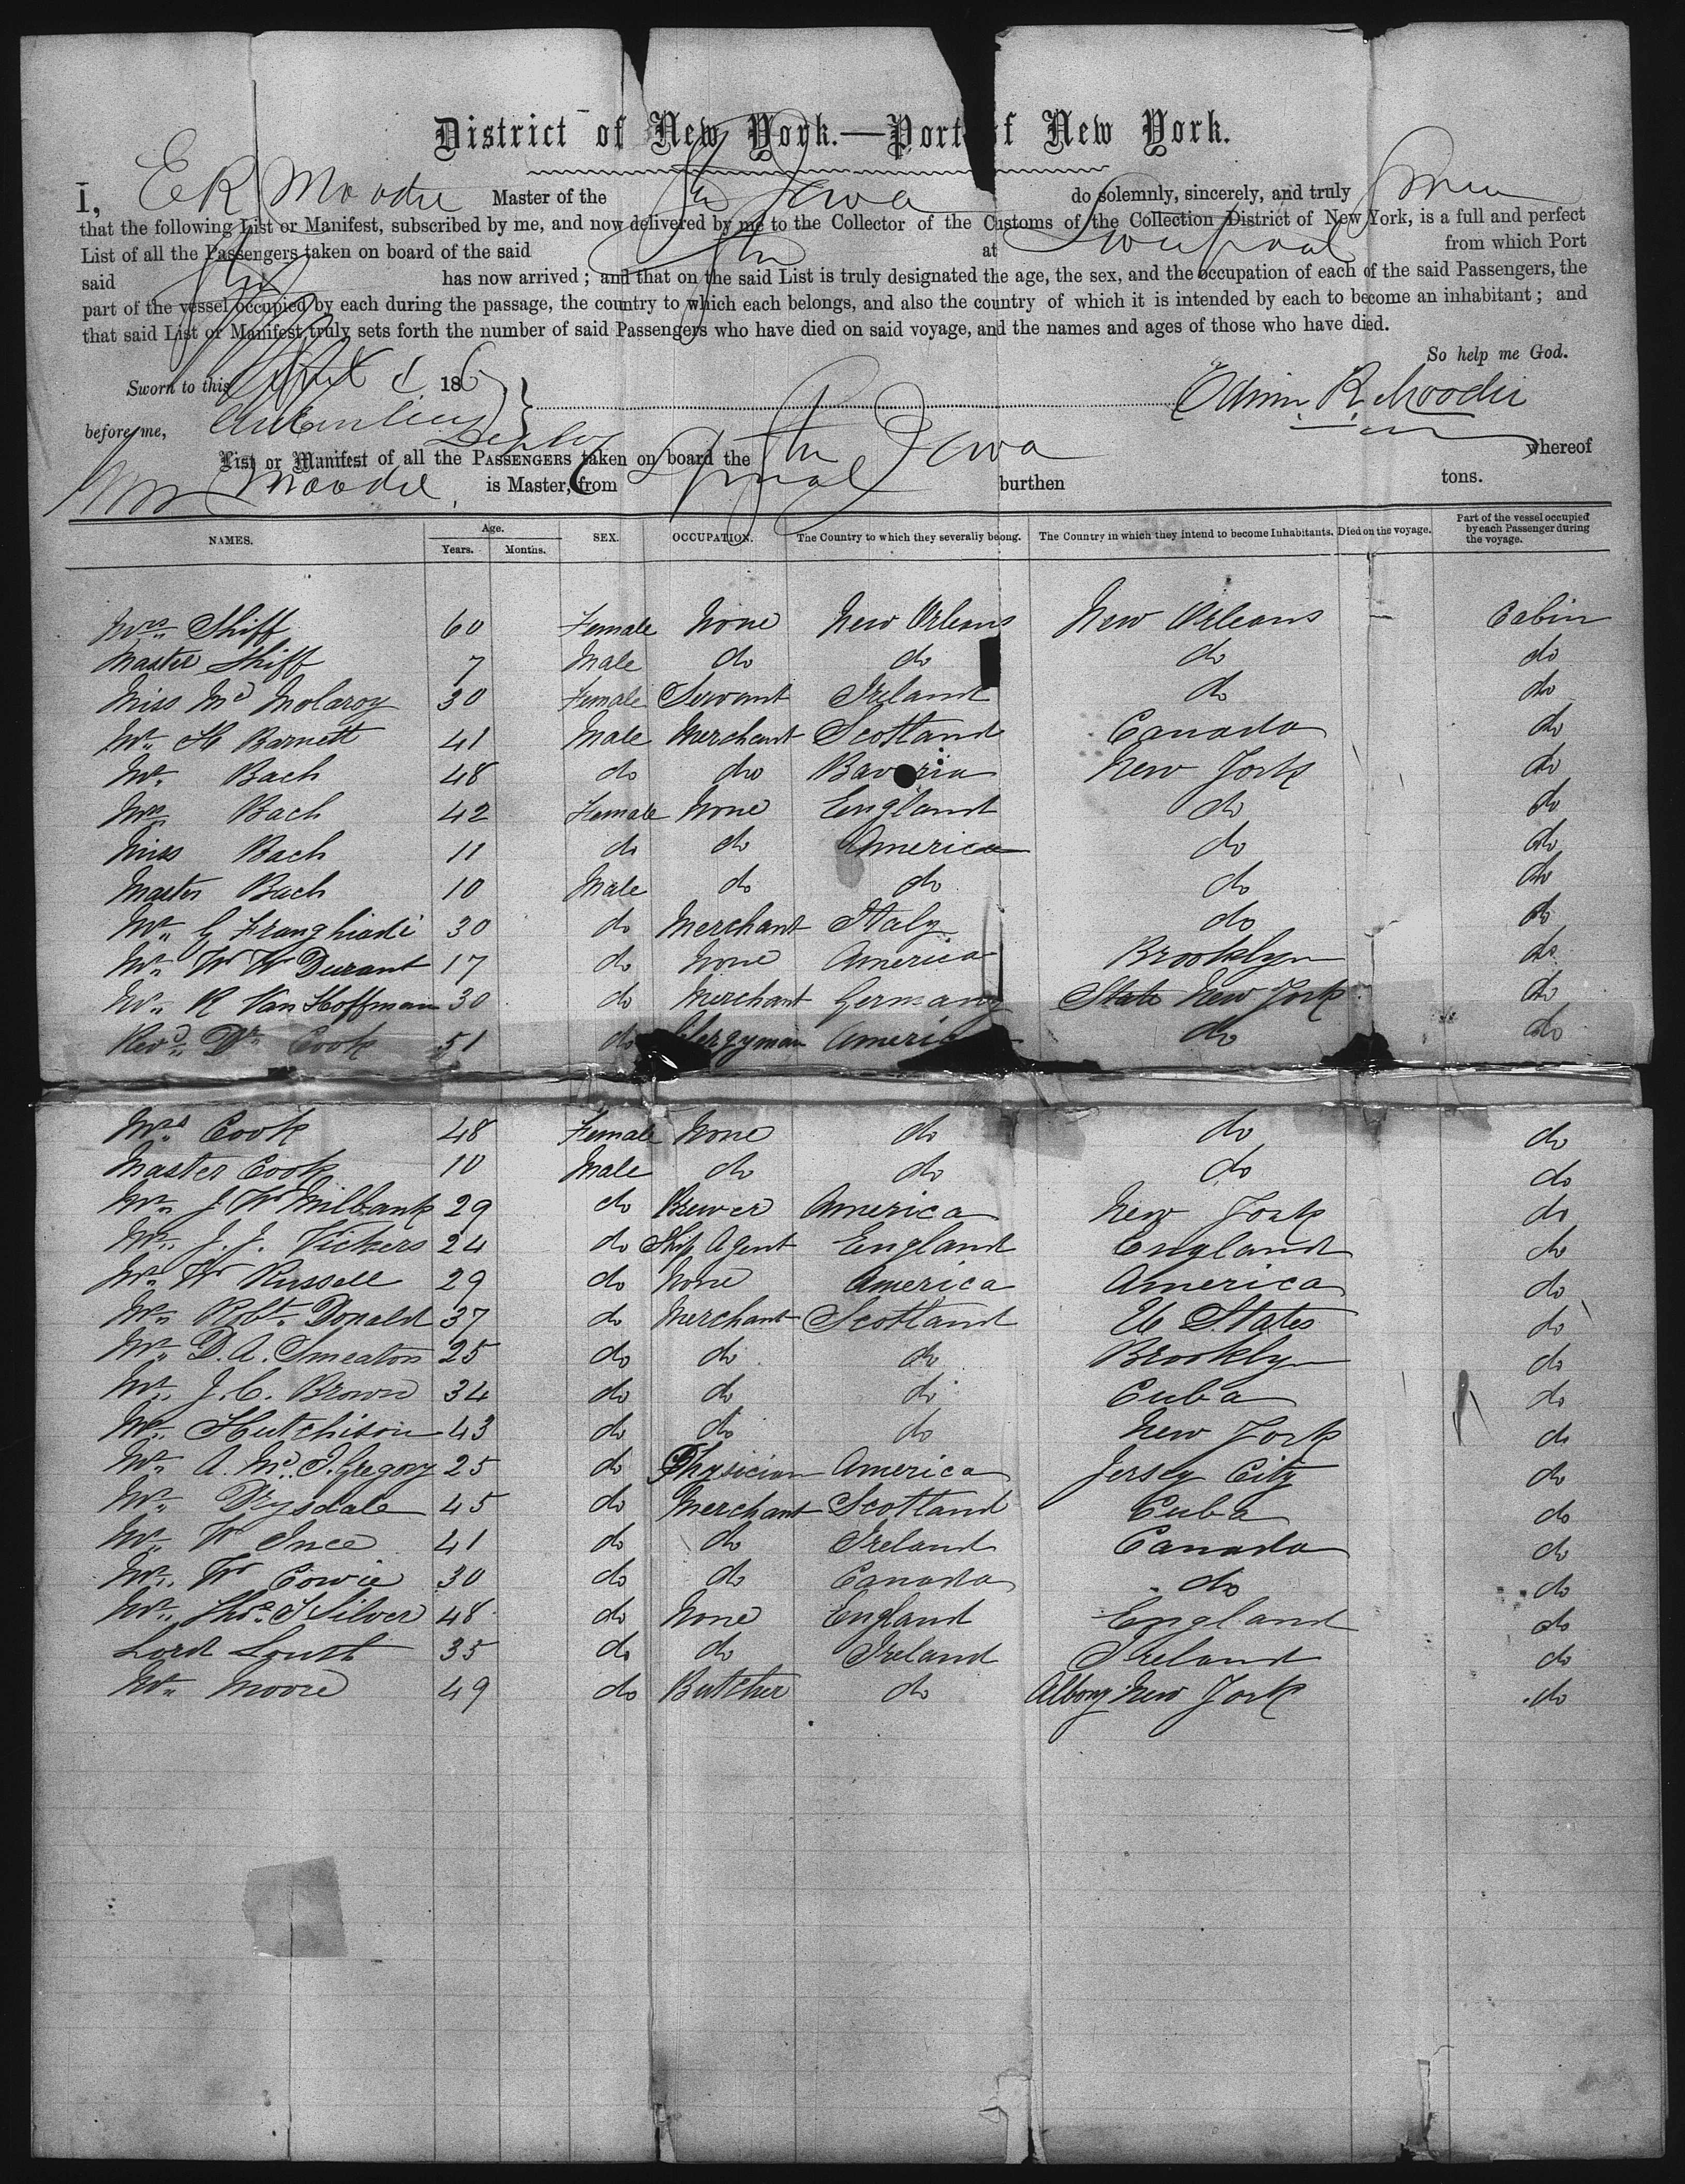 District of New York.—Port of New York.
I, E R Moodie Master of the Str Java do solemnly, sincerely, and truly Swear
that the following List or Manifest, subscribed by me, and now delivered by me to the Collector of the Customs of the Collection District of New York, is a full and perfect
List of all the Passengers taken on board of the said Str at Liverpool from which Port
said Str has now arrived; and that on the said List is truly designated the age, the sex, and the occupation of each of the said Passengers, the
part of the vessel occupied by each during the passage, the country to which each belongs, and also the country of which it is intended by each to become an inhabitant; and
that said List or Manifest truly sets forth the number of said Passengers who have died on said voyage, and the names and ages of those who have died.
So help me God.
Sworn to this 186 Edwin R. Moodie
before me,
List or Manifest of all the PASSENGERS taken on board the Str Java whereof
Moodie is Master, from Lpool burthen tons.
NAMES. Age. Years. Months. SEX. OCCUPATION. The Country to which they severally belong. The Country in which they intend to become Inhabitants. Died on the voyage. Part of the vessel occupied by each Passenger during the voyage.
Mrs Shiff 60 Female None New Orleans New Orleans — Cabin
Master Shiff 7 Male do do do do
Miss Mc Molaroy 30 Female Servant Ireland do do
Mr H Barnett 41 Male Merchant Scotland Canada do
Mr Bach 48 do do Bavaria New York do
Mrs Bach 42 Female None England do do
Miss Bach 11 do do America do do
Master Bach 10 Male do do do do
Mr G Franghiadi 30 do Merchant Italy do do
Mr W W Durant 17 do None America Brooklyn do
Mr R Van Hoffman 30 do Merchant Germany State New York do
Revd Dr Cook 51 do Clergyman America do do
Mrs Cook 48 Female None do do do
Master Cook 10 Male do do do do
Mr J W Milbank 29 do Brewer America New York do
Mr J. J. Vickers 24 do Ship Agent England England do
Mr W Russell 29 do None America America do
Mr Robt Donald 37 do Merchant Scotland U States do
Mr D. A. Smeaton 25 do do do Brooklyn do
Mr J. C. Brown 34 do do do Cuba do
Mr Hutchison 43 do do do New York do
Mr A. Mc. J. Gregory 25 do Physician America Jersey City do
Mr Drysdale 45 do Merchant Scotland Cuba do
Mr W Ince 41 do do Ireland Canada do
Mr W Cowie 30 do do Canada do do
Mr Thos J Silver 48 do None England England do
Lord Louth 35 do do Ireland Ireland do
Mr Moore 49 do Butcher do Albany New York do